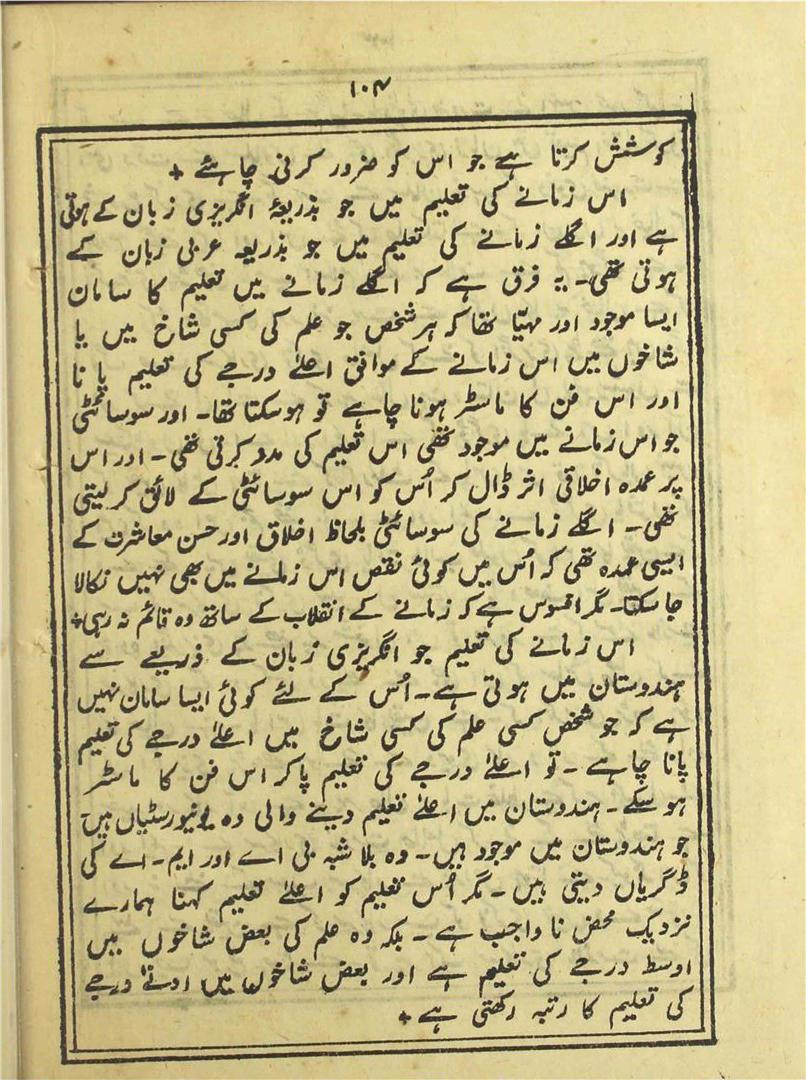 ۱۰۴
کوشش کرتا ہے جو اس کو ضرور کرنی چاہئے +
اس زمانے کی تعلیم میں جو بذریعۂ انگریزی زبان کے ہوتی
ہے اور اگلے زمانے کی تعلیم میں جو بذریعہ عربی زبان کے
ہوتی تھی۔ یہ فرق ہے کہ اگلے زمانے میں تعلیم کا سامان
ایسا موجود اور مہیّا تھا کہ ہر شخص جو علم کی کسی شاخ میں یا
شاخوں میں اس زمانے کے موافق اعلےٰ درجے کی تعلیم پانا
اور اس فن کا ماسٹر ہونا چاہے تو ہوسکتا تھا۔ اور سوسائٹی
جو اس زمانے میں موجود تھی اس تعلیم کی مدد کرتی تھی۔ اور اس
پر عمدہ اخلاقی اثر ڈال کر اُس کو اس سوسائٹی کے لائق کر لیتی
تھی۔ اگلے زمانے کی سوسائٹی بلحاظ اخلاق اور حسن معاشرت کے
ایسی عمدہ تھی کہ اُس میں کوئی نقص اس زمانے میں بھی نہیں نکالا
جا سکتا۔ مگر افسوس ہے کہ زمانے کے انقلاب کے ساتھ وہ قائم نہ رہی +
اس زمانے کی تعلیم جو انگریزی زبان کے ذریعے سے
ہندوستان میں ہوتی ہے۔ اُس کے لئے کوئی ایسا سامان نہیں
ہے کہ جو شخص کسی علم کی کسی شاخ میں اعلےٰ درجے کی تعلیم
پانا چاہے۔ تو اعلےٰ درجے کی تعلیم پاکر اس فن کا ماسٹر
ہو سکے۔ ہندوستان میں اعلےٰ تعلیم دینے والی وہ یونیورسٹیاں ہیں
جو ہندوستان میں موجود ہیں۔ وہ بلا شبہ بی اے اور ایم۔ اے کی
ڈگریاں دیتی ہیں۔ مگر اُس تعلیم کو اعلےٰ تعلیم کہنا ہمارے
نزدیک محض نا واجب ہے۔ بلکہ وہ علم کی بعض شاخوں میں
اوسط درجے کی تعلیم ہے اور بعض شاخوں میں ادنےٰ درجے
کی تعلیم کا رتبہ رکھتی ہے +